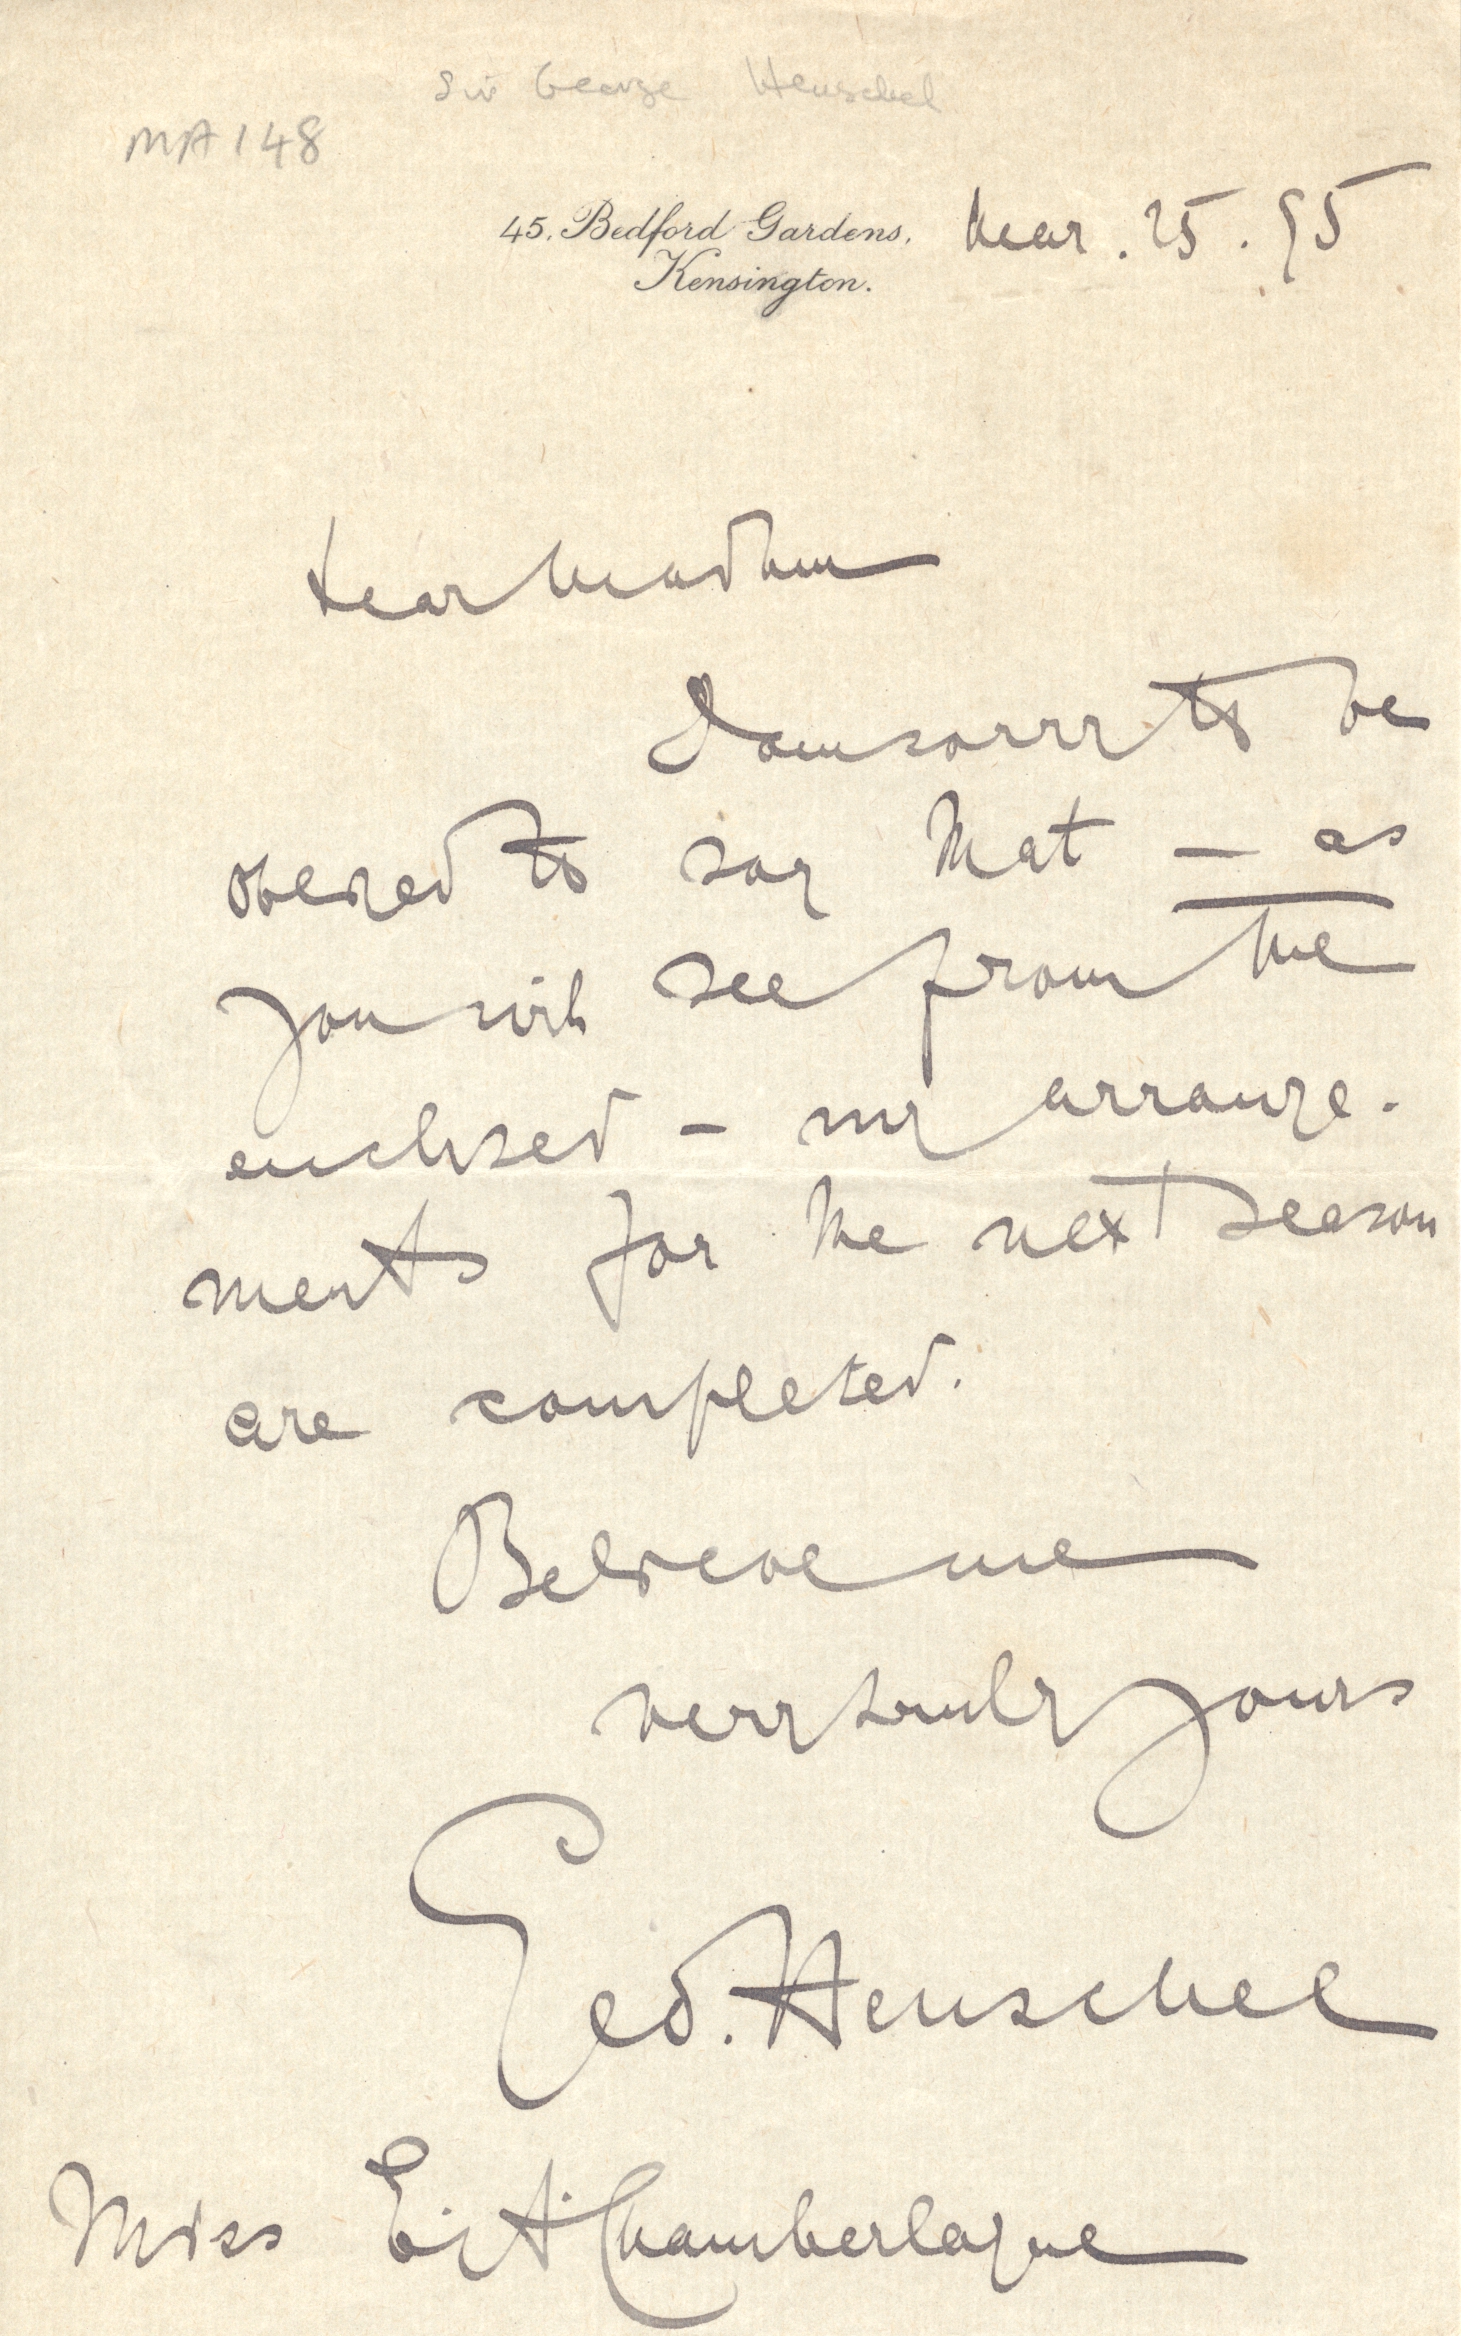 Sir George Henschel
MA 148
45, Bedford Gardens, Mar. 25. 95
Kensington.
Dear Madam
I am sorry to be
obliged to say that — as
you will see from the
enclosed — my arrange-
ments for the next season
are completed.
Believe me
very truly yours
Geo. Henschel
Miss E. A. Chamberlayne